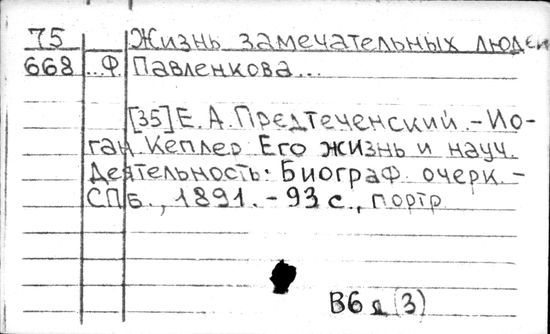 75 Жизнь замечательных людей
668 ...Ф. Павленкова...
[35] Е. А. Предтеченский. - Ио-
ган Кеплер. Его жизнь и науч.
Деятельность: Биограф. очерк. -
СПб., 1891. - 93 с., портр.
В6 я (3)